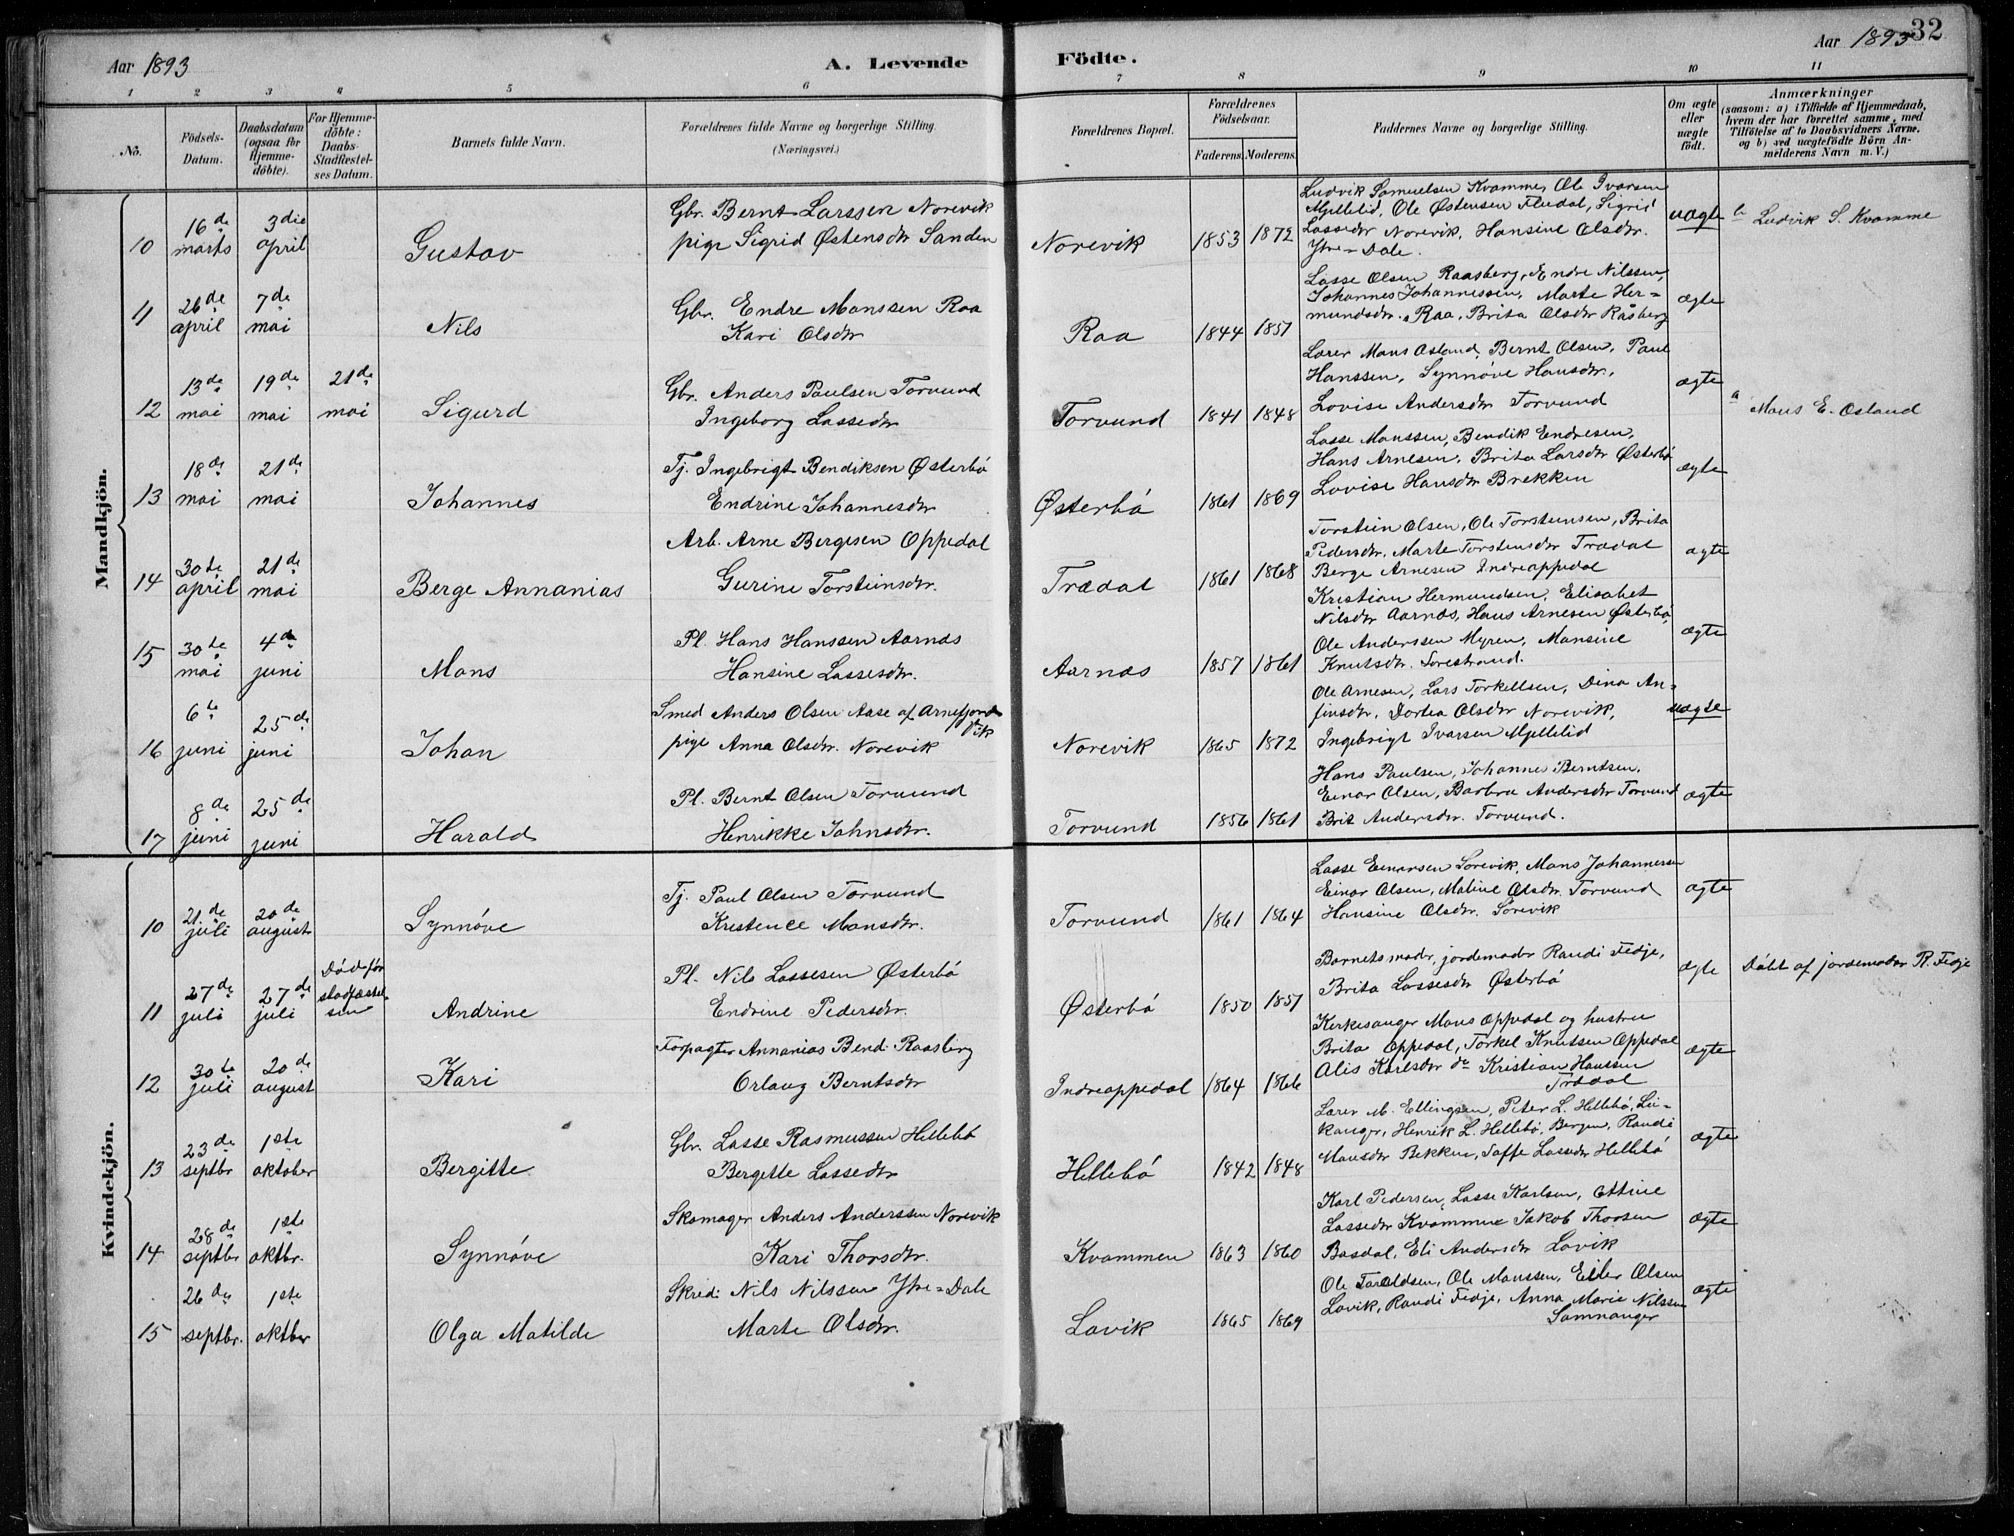 Aar 1893
A. Levende
Födte.
Aar 1893
32
1 2 3 4 5 6 7 8 9 10 11
No.
Födsels-Datum.
Daabsdatum (ogsaa for Hjemme-döbte).
For Hjemme-döbte: Daabs-Stadfæstel-ses Datum.
Barnets fulde Navn.
Forældrenes fulde Navne og borgerlige Stilling.
(Næringsvei.)
Forældrenes Bopæl.
Forældrenes Födselsaar.
Faderens. Moderens.
Faddernes Navne og borgerlige Stilling.
Om ægte eller uægte födt.
Anmærkninger
(saasom: a) i Tilfælde af Hjemmedaab,
hvem der har forrettet samme, med
Tilföielse af to Daabsvidners Navne.
og b) ved uægtefödte Börn An-
melderens Navn m. V.)
Mandkjön.
10 16de marts 3die april Gustav
Gbr. Bernt Larssen Norevik
pige Sigrid Østensdtr Sanden
Norevik 1853 1872
Ludvik Samuelsen Kvamme, Ole Ivarsen
Mjellelid, Ole Østensen Fludal, Sigrid
Lassedtr Norevik, Hansine Olsdtr.
Ytre-Dale.
uægte
b Ludvik S. Kvamme
11 26de april 7de mai Nils
Gbr. Endre Monssen Raa
Kari Olsdtr
Raa 1844 1851
Lasse Olsen Raasberg, Endre Nilssen,
Johannes Johannessen, Marte Her-
mundsdtr. Raa, Brita Olsdtr Råsberg
ægte
12 13de mai 19de mai 21de mai Sigurd
Gbr. Anders Paulsen Torvund
Ingeborg Lassedtr
Torvund 1841 1848
Lærer Mons Østand, Bernt Olsen, Paul
Hanssen, Synnøve Hansdtr,
Lovise Andersdtr Torvund
ægte
a Mons E. Østand
13 18de mai 21de mai Johannes
Tj. Ingebrigt Bendiksen Østerbö
Endrine Johannesdtr
Østerbö 1861 1869
Lasse Monssen, Bendik Endresen,
Hans Arnesen, Brita Larsdtr Østerbö
Lovise Hansdtr Brekken
ægte
14 30te april 21de mai Berge Annanias
Arb. Arne Bergesen Oppedal
Gurine Torsteinsdtr.
Trædal 1861 1868
Torstein Olsen, Ole Torsteinsen, Brita
Pedersdtr, Marte Torstensdtr Trædal
Berge Arnesen Indreoppedal
ægte
15 30te mai 4de juni Mons
Pl. Hans Hanssen Aarnæs
Hansine Lassesdtr.
Aarnæs 1857 1861
Kristian Hermundsen, Elisabet
Nilsdtr Aarnæs, Hans Arnesen Østerbö
Ole Anderssen Myren, Mansine
Knutsdtr. Sørestrand.
ægte
16 6te juni 25de juni Johan
Smed Anders Olsen Aase af Arnefjord
pige Anna Olsdtr. Norevik
Norevik 1865 1872
Ole Arnesen, Lars Torkellsen, Dina An-
finsdtr, Dortea Olsdtr Norevik,
Ingebrigt Ivarsen Mjellelid
uægte
17 8de juni 25de juni Harald
Pl. Bernt Olsen Torvund
Henrikke Johnsdtr.
Torvund 1856 1861
Hans Paulsen, Johannes Berntsen,
Einar Olsen, Barbra Andersdtr Torvund
Brit Andersdtr. Torvund.
ægte
Kvindekjön.
10 21de juli 20de august Synnøve
Tj. Paul Olsen Torvund
Kristence Monsdtr.
Torvund 1861 1864
Lasse Einarsen Sørevik, Mons Johannessen
Einar Olsen, Maline Olsdtr Torvund
Hansine Olsdtr. Sørevik
ægte
11 27de juli 27de juli Död før stadfæstel-sen Andrine
Pl. Nils Lassesen Østerbö
Endrine Pedersdtr.
Østerbö 1850 1851
Barnets moder, jordemoder Randi Fedje,
Brita Lassesdtr Østerbö
ægte
Döbt af jordemoder R. Fedje
12 30te juli 20de august Kari
Forpagter Annanias Bend. Raasberg
Orlaug Berntsdtr
Indreoppedal 1864 1866
Kirkesanger Mons Oppedal og hustru
Brita Oppedal, Torkel Knutsen Oppedal
Alis Karlsdtr do Kristian Hanssen
Trædal
ægte
13 23de septbr 1ste oktober Bergitte
Gbr. Lasse Rasmussen Hellebö
Bergette Lassedtr
Hellebö 1842 1848
Lærer M. Ellingsen, Peter L. Hellebö, Lei-
kanger, Henrik L. Hellebö, Bergen, Randi
Monsdtr Bekken, Taffe Lassedtr Hellebö
ægte
14 28de septbr 1ste oktbr. Synnøve
Skomager Anders Anderssen Norevik
Kari Thorsdtr.
Kvammen 1863 1860
Karl Pedersen, Lasse Karlsen, Ettine
Lassedtr Kvammen Jakob Thorsen
Basdal, Eli Andersdtr Lavik
ægte
15 26de septbr. 1ste oktber Olga Matilde
Skred: Nils Nilssen Ytre-Dale
Marte Olsdtr.
Lavik 1865 1869
Ole Taraldsen, Ole Monssen, Eider Olsen
Lavik, Randi Fedje, Anna Marie Nilssen
Samnanger
ægte